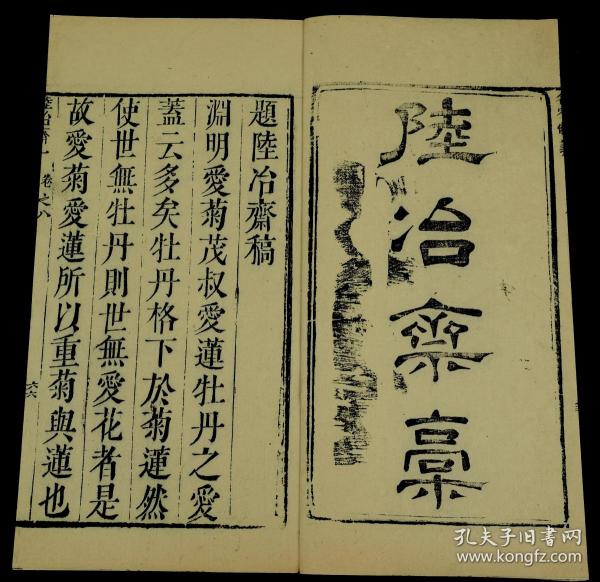 陸冶齋稾
題陸冶齋稿
淵明愛菊茂叔愛蓮牡丹之愛
蓋云多矣牡丹格下於菊蓮然
使世無牡丹則世無愛花者是
故愛菊愛蓮所以重菊與蓮也
卷之八
六六
孔夫子旧书网
www.kongfz.com